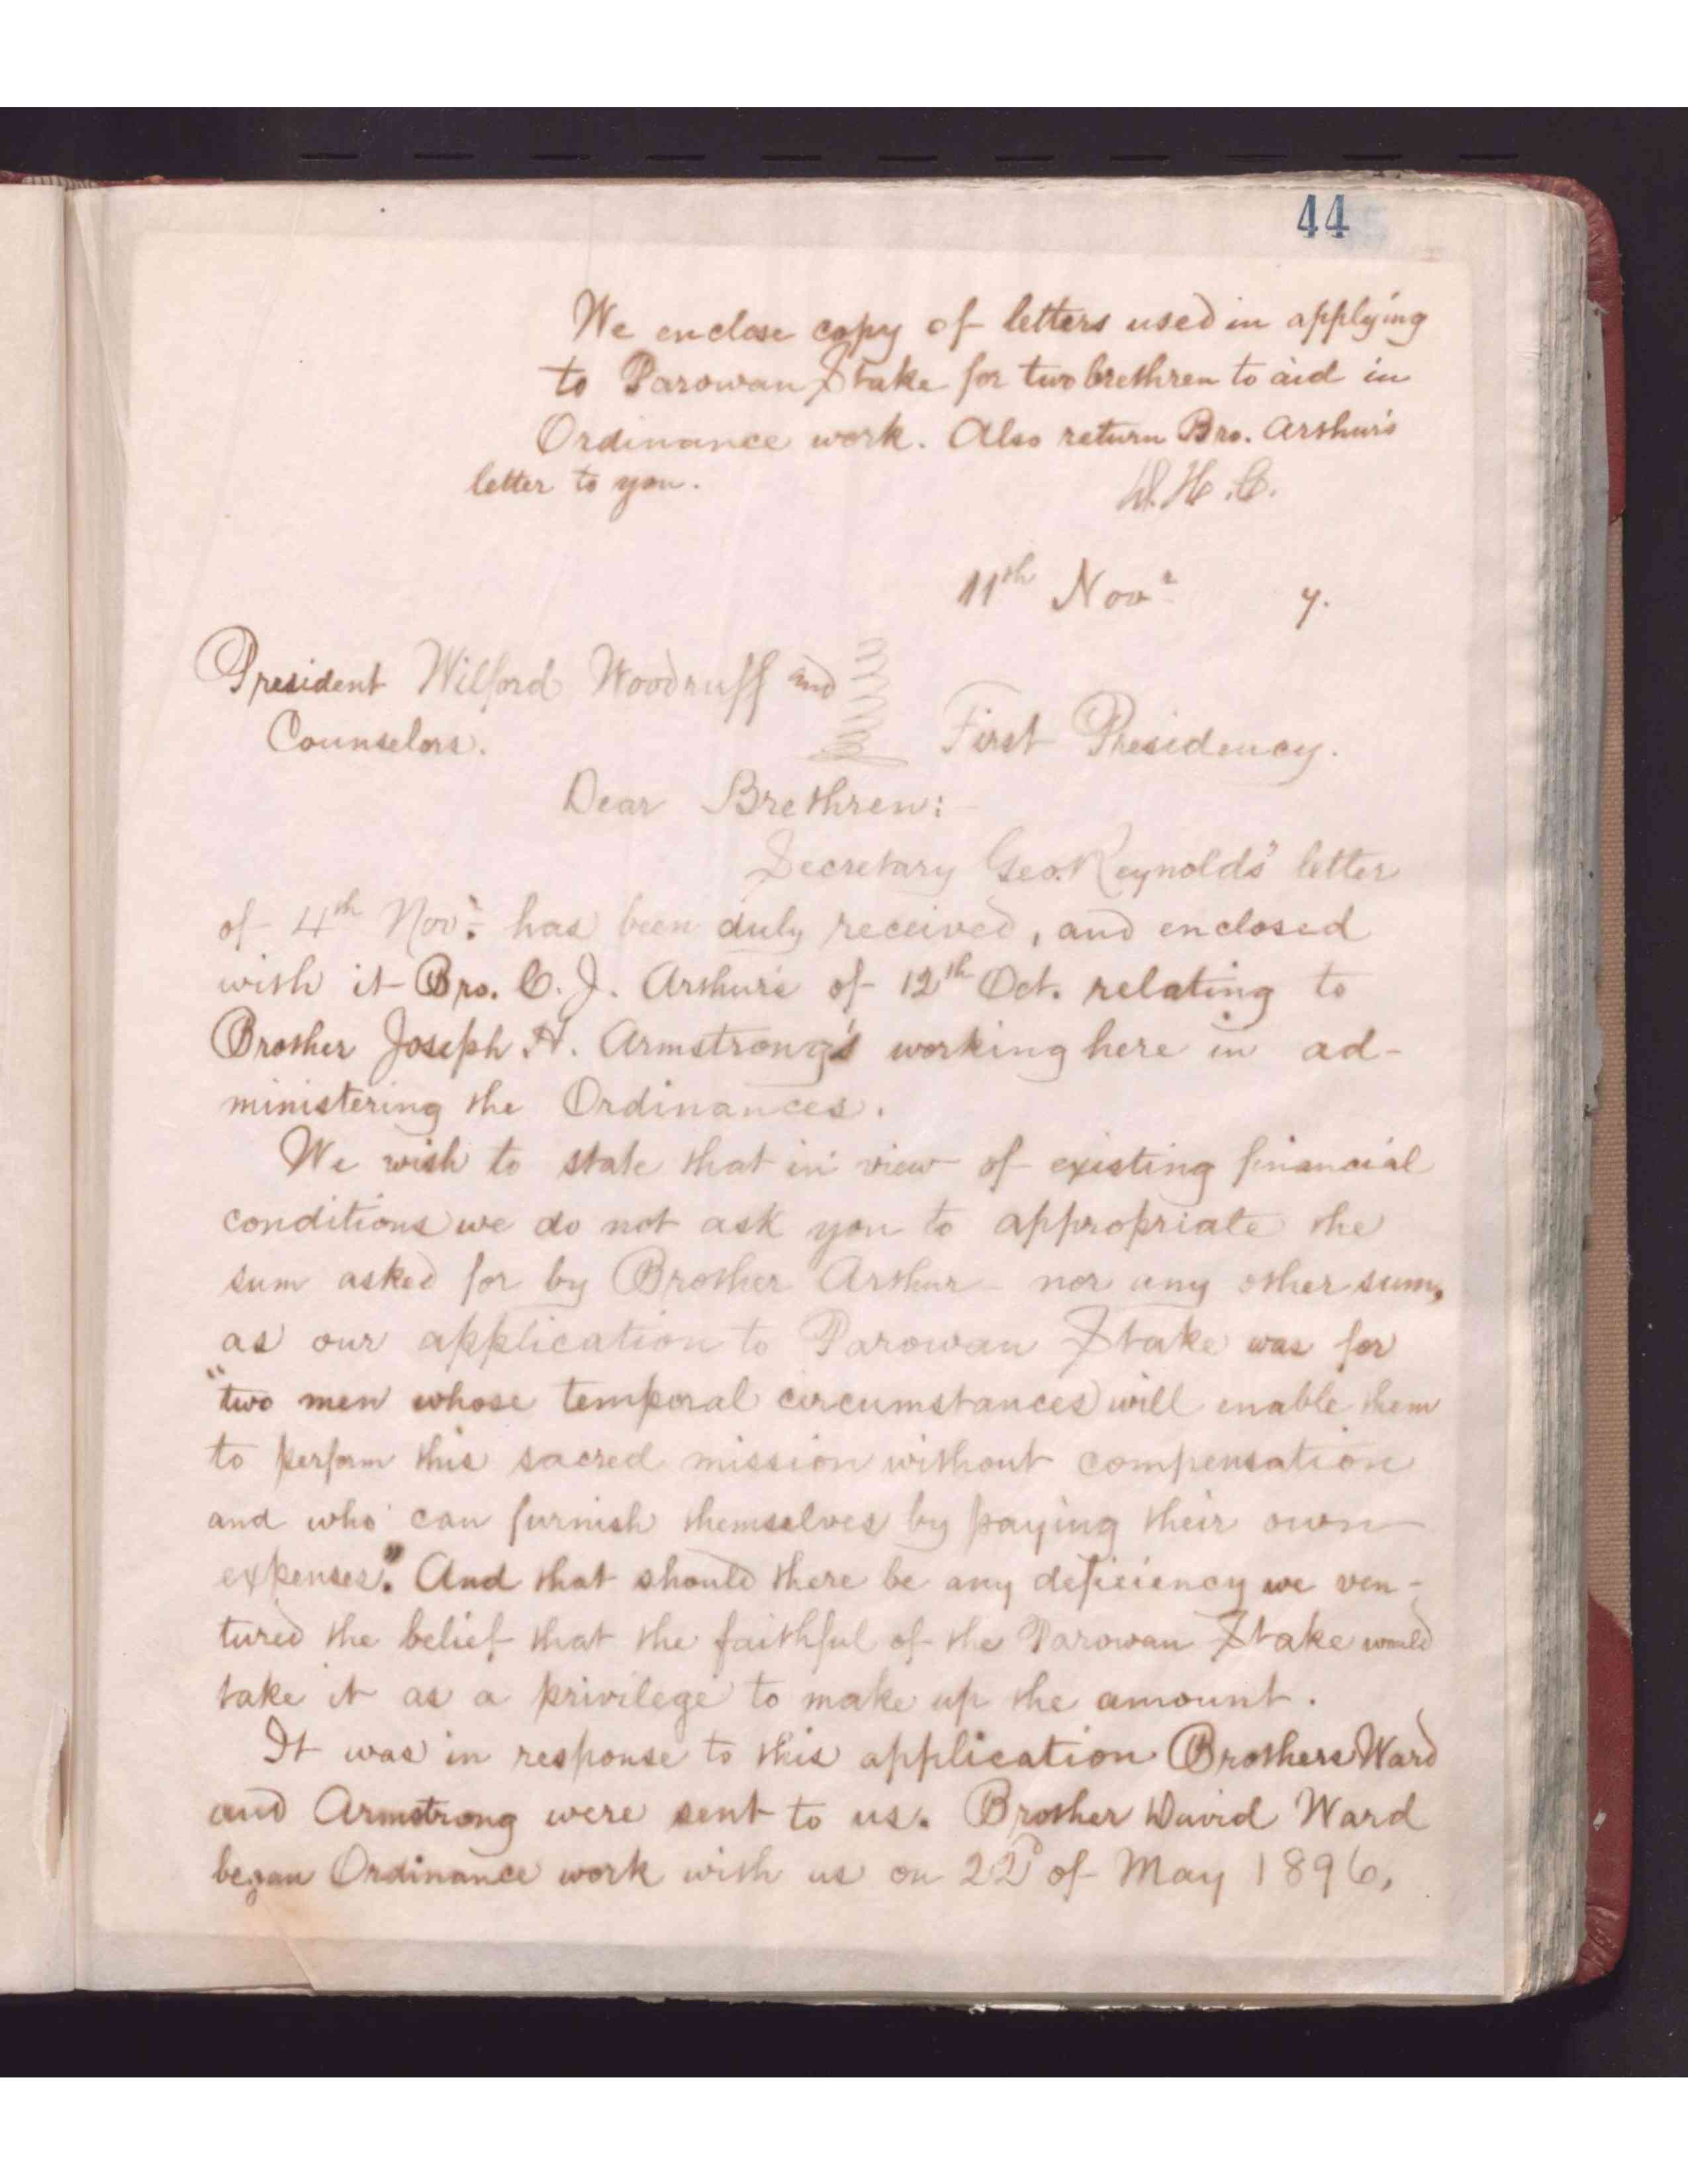 44
We enclose copy of letters used in applying
to Parowan Stake for two brethren to aid in
Ordinance work. Also return Bro. Arthur's
letter to you.
D. H. C.
11th Novr 7.
President Wilford Woodruff and
Counselors. First Presidency.
Dear Brethren:
Secretary Geo. Reynolds' letter
of 4th Novr. has been duly received, and enclosed
with it Bro. C. J. Arthur's of 12th Oct. relating to
Brother Joseph H. Armstrong's working here in ad-
ministering the Ordinances.
We wish to state that in view of existing financial
conditions we do not ask you to appropriate the
sum asked for by Brother Arthur - nor any other sum,
as our application to Parowan Stake was for
"two men whose temporal circumstances will enable them
to perform this sacred mission without compensation
and who can furnish themselves by paying their own
expenses." And that should there be any deficiency we ven-
tured the belief that the faithful of the Parowan Stake would
take it as a privilege to make up the amount.
It was in response to this application Brothers Ward
and Armstrong were sent to us. Brother David Ward
began Ordinance work with us on 22d of May 1896,